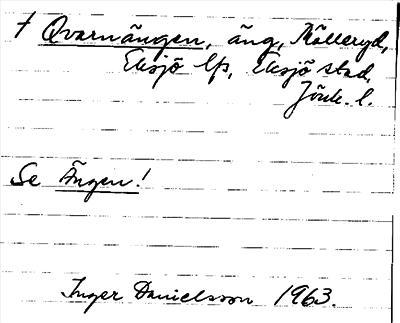 † Qvarnängen, äng, Målleryd,
Eksjö lfs, Eksjö stad,
Jönk. l.
Se Ängen!
Inger Danielsson 1963.